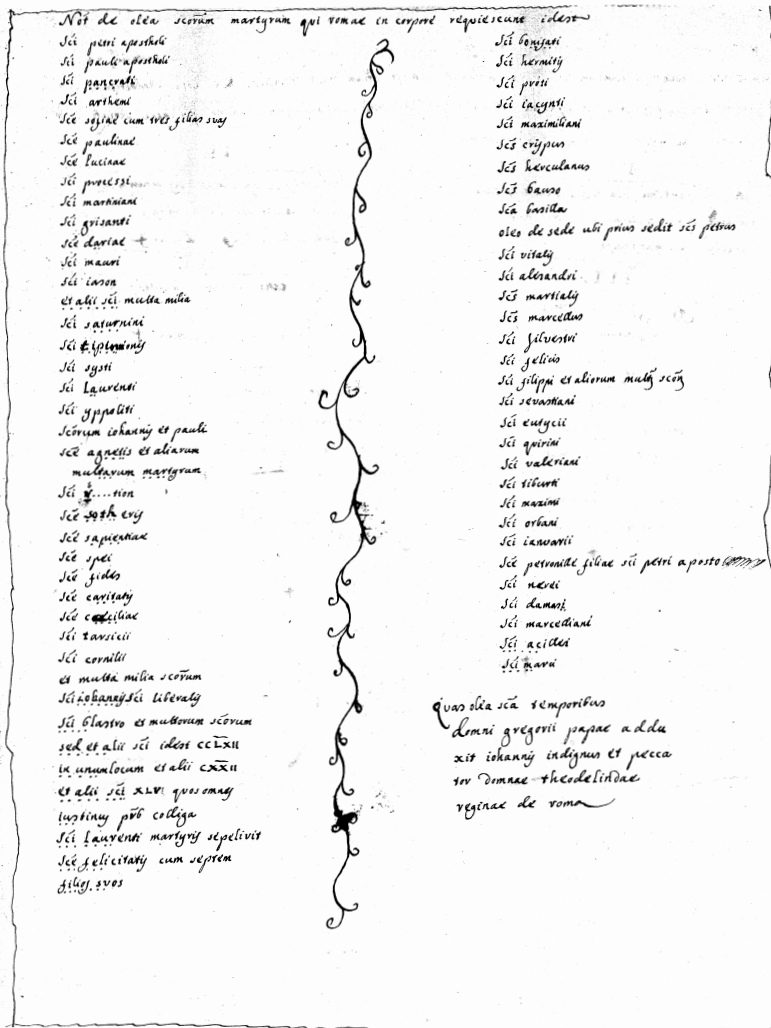 Not de olea scōrum martyrum qui romae in corpore requiescunt idest
Scī petri apostholi
Scī pauli apostholi
Scī pancrati
Scī arthemi
Scē sofiae cum tres filias suas
Scē paulinae
Scē lucinae
Scī processi
Scī martiniani
Scī grisanti
Scē dariae
Scī mauri
Scī iason
et alii scī multa milia
Scī saturnini
Scī
Scī systi
Scī Laurenti
Scī yppoliti
Scōrum iohannis et pauli
Scē agnetis et aliarum
multarum martyrum
Scī ....tion
Scē sotheris
Scē sapientiae
Scē spei
Scē fides
Scē caritatis
Scē caeciliae
Scī tarsicii
Scī cornilii
et multa milia scōrum
Scī iohannis Scī liberalis
Scī blastro et multorum scōrum
sed et alii scī idest CCLXII
in unum locum et alii CXXII
et alii scī XLVI quos omnes
iustinus prb colliga
Scī Laurenti martyris sepelivit
Scē felicitatis cum septem
filios suos
Scī bonifati
Scī hermitis
Scī proti
Scī iacynti
Scī maximiliani
Scs̄ crispus
Scs̄ herculanus
Scs̄ bauso
Scā basilla
oleo de sede ubi prius sedit scs̄ petrus
Scī vitalis
Scī alesandri
Scs̄ martialis
Scs̄ marcellus
Scī silvestri
Scī felicis
Scī filippi et aliorum multꝫ scōꝫ
Scī sevastiani
Scī eutycii
Scī quirini
Scī valeriani
Scī tiburti
Scī maximi
Scī orbani
Scī ianuarii
Scē petronillae filiae scī petri aposto
Scī nerei
Scī damasi
Scī marcelliani
Scī acillei
Scī marci
Quas olea scā temporibus
domni gregorii papae addu
xit iohannis indignus et pecca
tor domnae theodelindae
reginae de roma